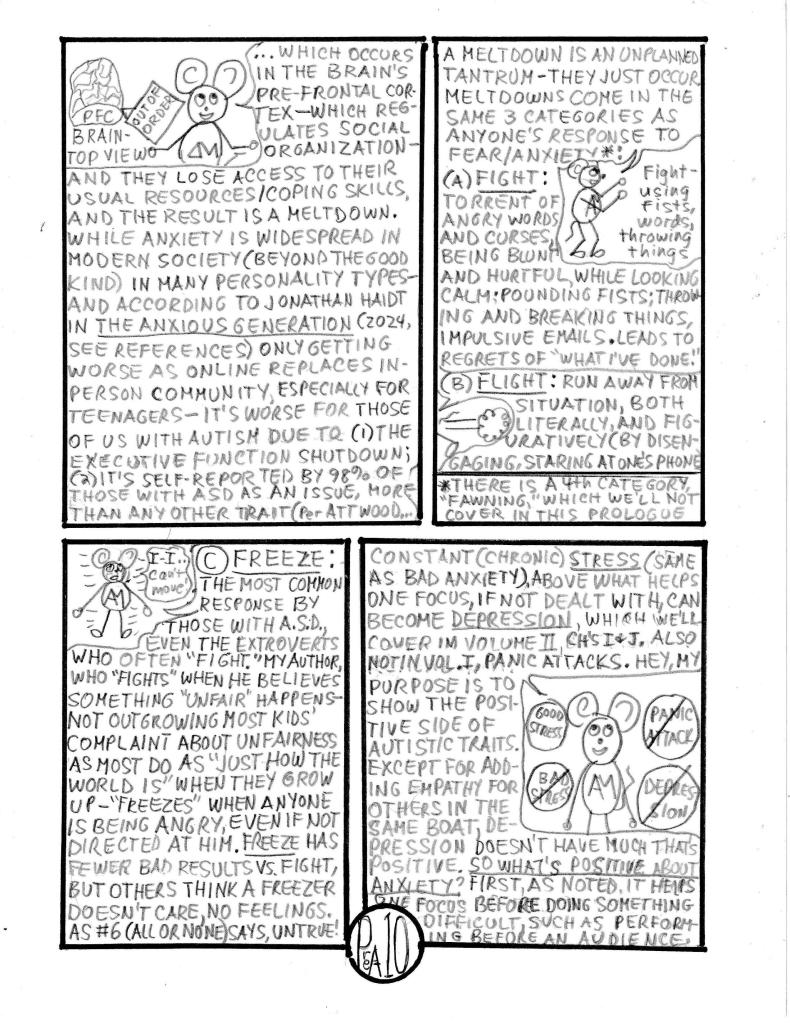 ...WHICH OCCURS
IN THE BRAIN'S
PRE-FRONTAL COR-
TEX—WHICH REG-
ULATES SOCIAL
ORGANIZATION—
PFC
OUT OF
ORDER
BRAIN-
TOP VIEW
AM
AND THEY LOSE ACCESS TO THEIR
USUAL RESOURCES/COPING SKILLS,
AND THE RESULT IS A MELTDOWN.
WHILE ANXIETY IS WIDESPREAD IN
MODERN SOCIETY (BEYOND THE GOOD
KIND) IN MANY PERSONALITY TYPES—
AND ACCORDING TO JONATHAN HAIDT
IN THE ANXIOUS GENERATION (2024,
SEE REFERENCES) ONLY GETTING
WORSE AS ONLINE REPLACES IN-
PERSON COMMUNITY, ESPECIALLY FOR
TEENAGERS—IT'S WORSE FOR THOSE
OF US WITH AUTISM DUE TO (1) THE
EXECUTIVE FUNCTION SHUTDOWN;
(2) IT'S SELF-REPORTED BY 98% OF
THOSE WITH ASD AS AN ISSUE, MORE
THAN ANY OTHER TRAIT (Per ATTWOOD...
A MELTDOWN IS AN UNPLANNED
TANTRUM-THEY JUST OCCUR.
MELTDOWNS COME IN THE
SAME 3 CATEGORIES AS
ANYONE'S RESPONSE TO
FEAR/ANXIETY*:
(A) FIGHT:
TORRENT OF
ANGRY WORDS
AND CURSES,
BEING BLUNT
A
Fight-
using
fists,
words,
throwing
things
AND HURTFUL, WHILE LOOKING
CALM; POUNDING FISTS; THROW-
ING AND BREAKING THINGS,
IMPULSIVE EMAILS. LEADS TO
REGRETS OF "WHAT I'VE DONE."
(B) FLIGHT: RUN AWAY FROM
SITUATION, BOTH
LITERALLY, AND FIG-
URATIVELY (BY DISEN-
GAGING, STARING AT ONE'S PHONE
*THERE IS A 4th CATEGORY,
"FAWNING," WHICH WE'LL NOT
COVER IN THIS PROLOGUE
I-I..
can't
move!
AM
(C) FREEZE:
THE MOST COMMON
RESPONSE BY
THOSE WITH A.S.D.,
EVEN THE EXTROVERTS
WHO OFTEN "FIGHT." MY AUTHOR,
WHO "FIGHTS" WHEN HE BELIEVES
SOMETHING "UNFAIR" HAPPENS—
NOT OUTGROWING MOST KIDS'
COMPLAINT ABOUT UNFAIRNESS
AS MOST DO AS "JUST HOW THE
WORLD IS" WHEN THEY GROW
UP-"FREEZES" WHEN ANYONE
IS BEING ANGRY, EVEN IF NOT
DIRECTED AT HIM. FREEZE HAS
FEWER BAD RESULTS VS. FIGHT,
BUT OTHERS THINK A FREEZER
DOESN'T CARE, NO FEELINGS.
AS #6 (ALL OR NONE) SAYS, UNTRUE!
CONSTANT (CHRONIC) STRESS (SAME
AS BAD ANXIETY), ABOVE WHAT HELPS
ONE FOCUS, IF NOT DEALT WITH, CAN
BECOME DEPRESSION, WHICH WE'LL
COVER IM VOLUME II, CH'S I & J. ALSO
NOT IN VOL. I, PANIC ATTACKS. HEY, MY
PURPOSE IS TO
SHOW THE POSI-
TIVE SIDE OF
AUTISTIC TRAITS.
EXCEPT FOR ADD-
ING EMPATHY FOR
OTHERS IN THE
SAME BOAT, DE-
GOOD
STRESS
PANIC
ATTACK
BAD
STRESS
AM
DEPRES-
SION
PRESSION DOESN'T HAVE MUCH THAT'S
POSITIVE. SO WHAT'S POSITIVE ABOUT
ANXIETY? FIRST, AS NOTED, IT HELPS
ONE FOCUS BEFORE DOING SOMETHING
DIFFICULT, SUCH AS PERFORM-
ING BEFORE AN AUDIENCE.